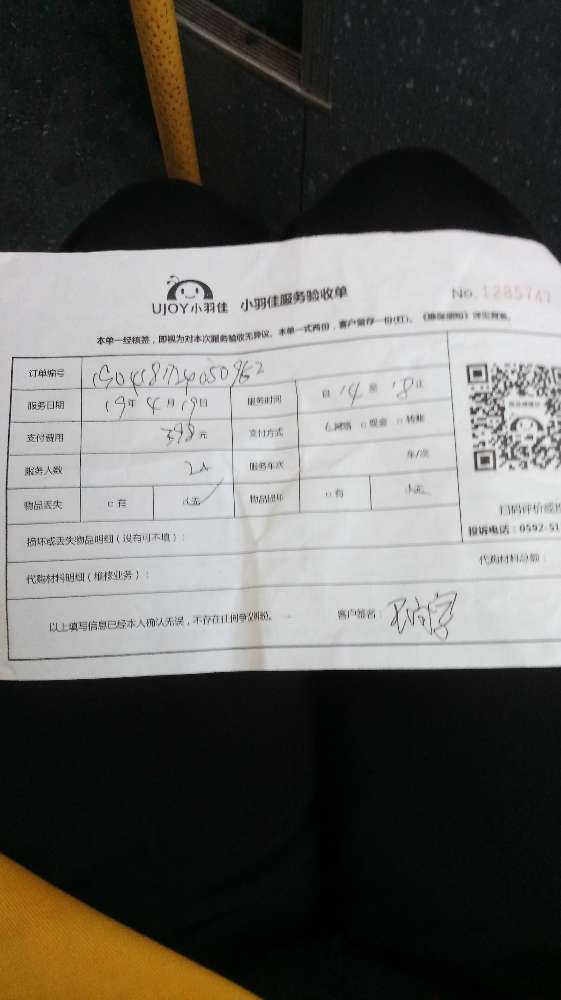 UJOY小羽佳 小羽佳服务验收单
No. 1285747
本单一经核签，即视为对本次服务验收无异议。本单一式两份，客户留存一份(红)。
订单编号
服务日期 19年4月19日 服务时间 自 14 至 18 止
支付费用 398元 支付方式 网络 □现金 □转账
服务人数 2人 服务车次 车/次
物品丢失 □有 无 物品损坏 □有 无
损坏或丢失物品明细（没有可不填）：
代购材料明细（维修业务）：
代购材料总额：
以上填写信息已经本人确认无误，不存在任何争议纠纷。 客户签名：
扫码评价或投
投诉电话：0592-51